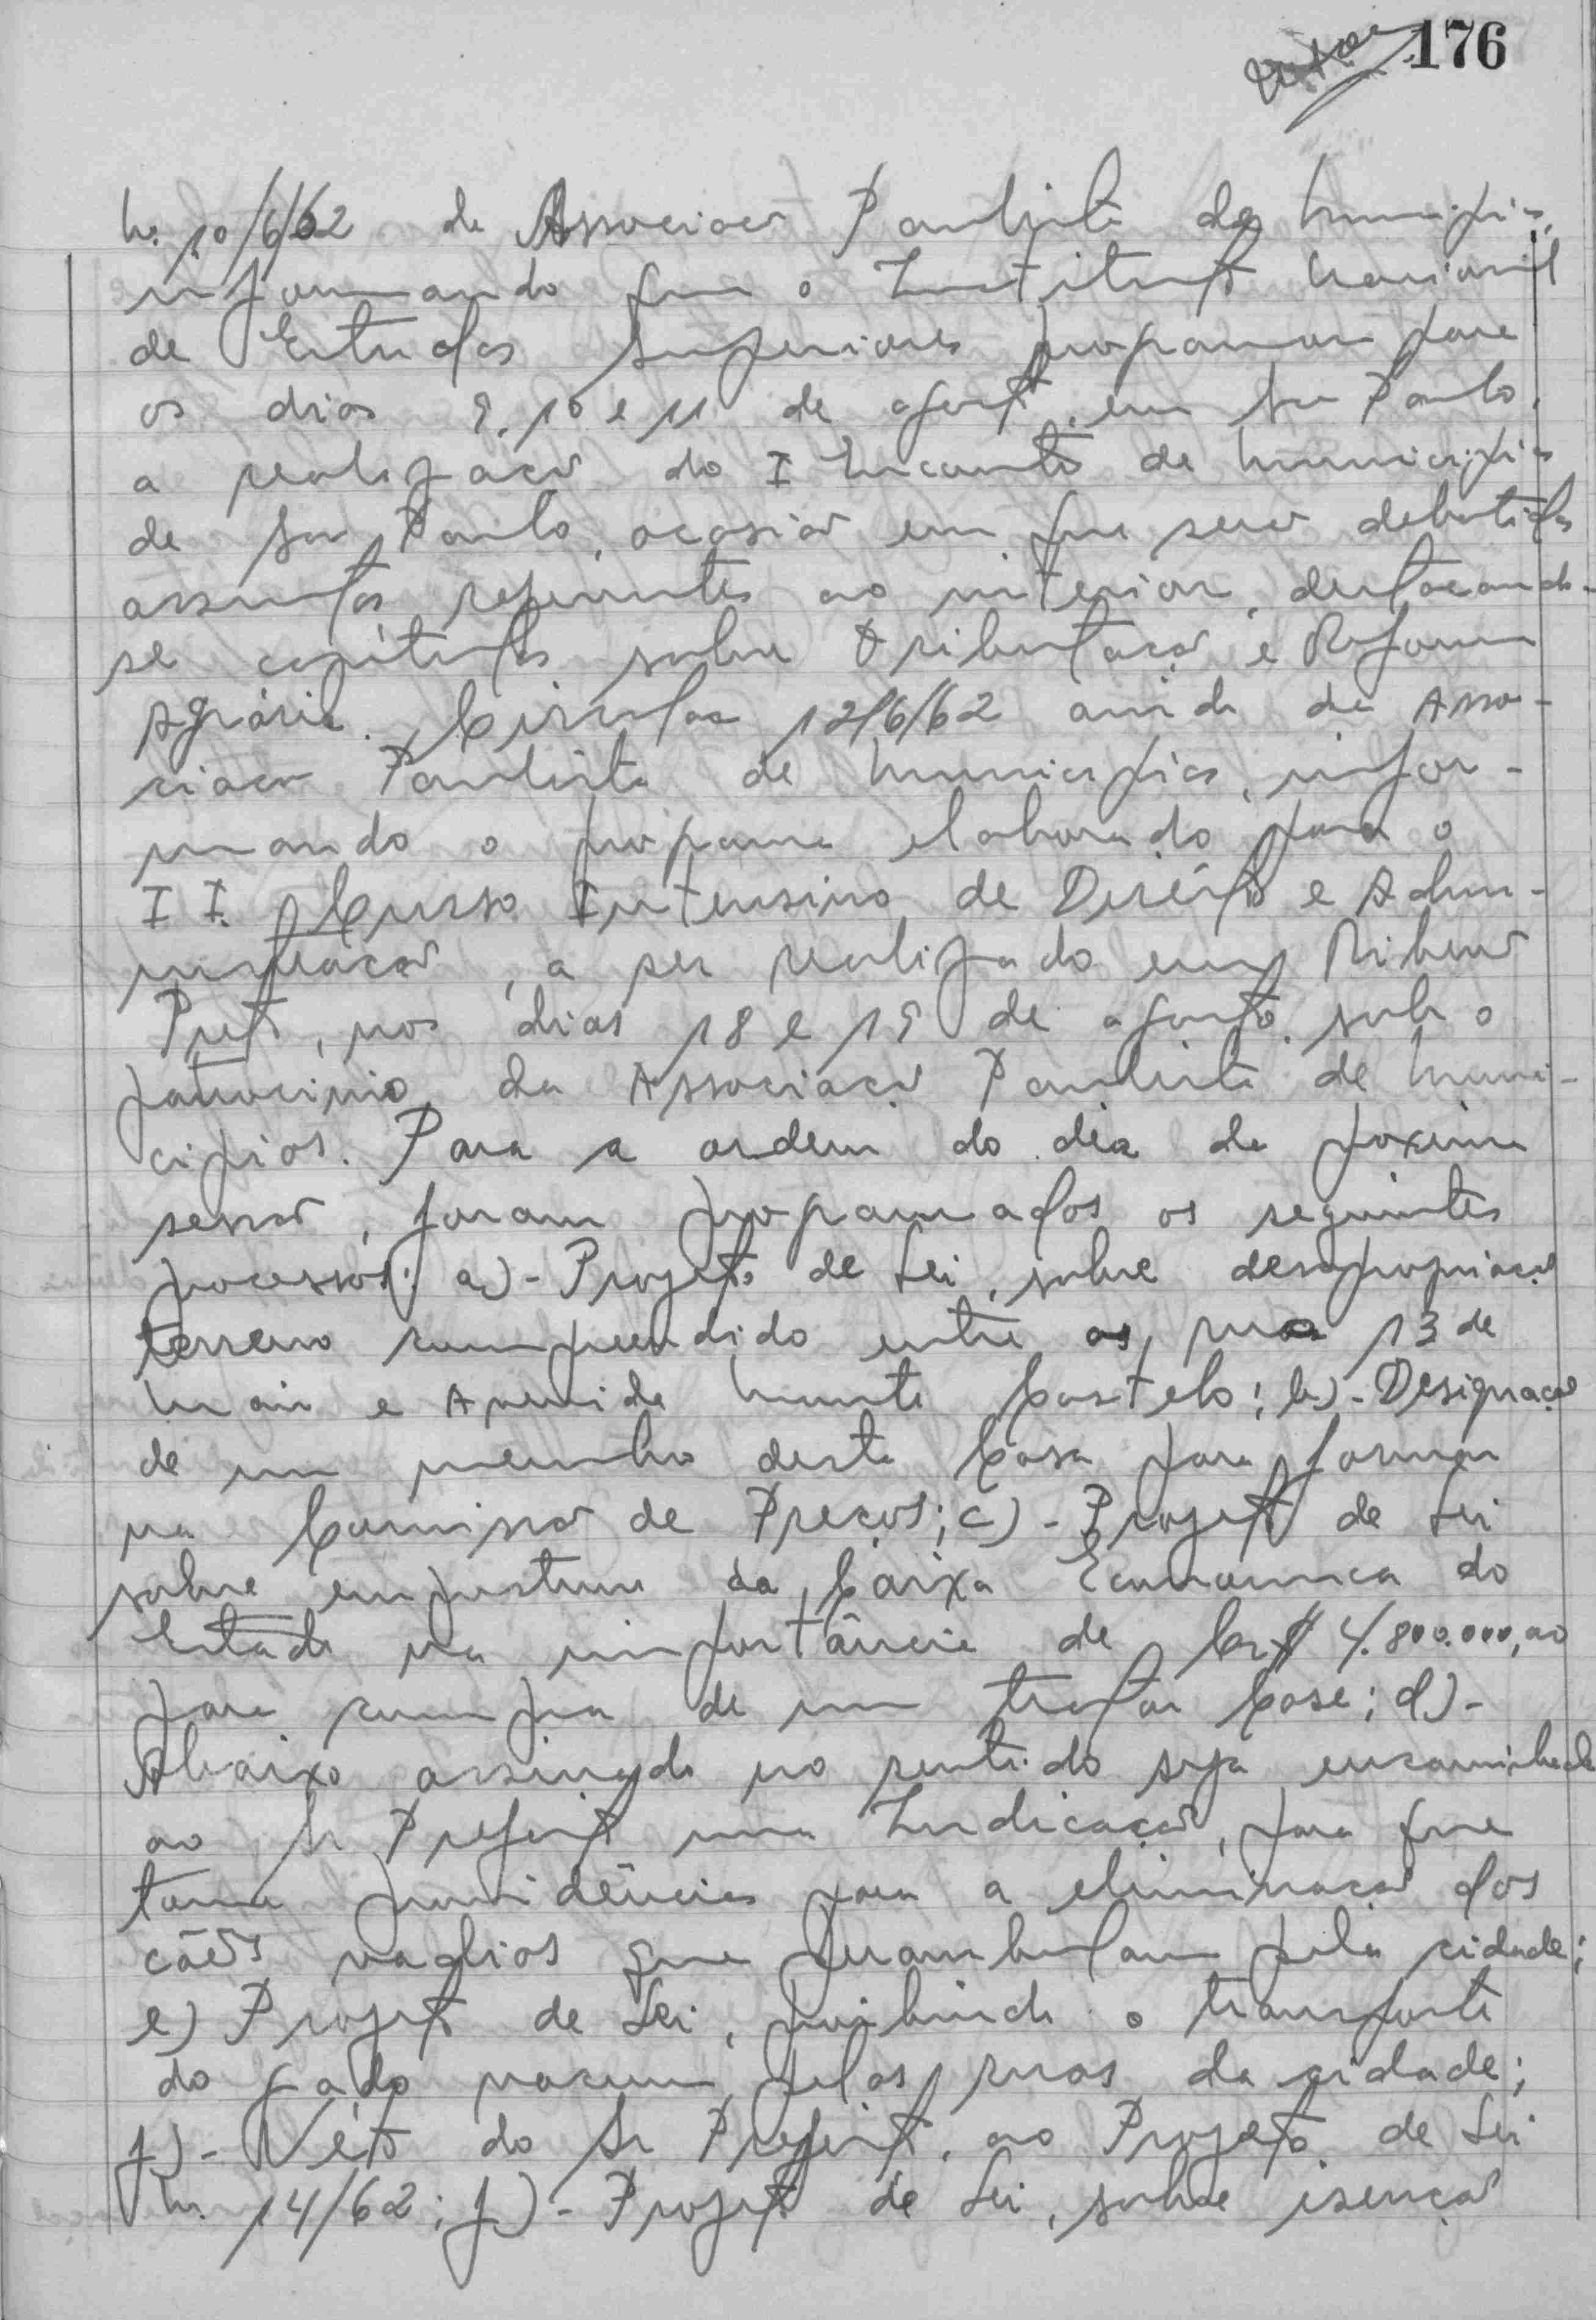 176
n. 10/6/62 da Associação Paulista de Municípios,
informando que o Instituto Nacional
de Estudos Superiores programou para
os dias 9, 10 e 11 de agosto, em São Paulo,
a realização do I Encontro de Municípios
de São Paulo, ocasião em que serão debatidos
assuntos referentes ao interior, destacando-
se capítulos sobre Tributação e Reforma
Agrária. Circular 12/6/62 ainda da Asso-
ciação Paulista de Municípios, infor-
mando o programa elaborado para o
II Curso Intensivo de Direito e Admi-
nistração, a ser realizado em Ribeirão
Preto, nos dias 18 e 19 de agosto, sob o
patrocinio da Associação Paulista de Muni-
cipios. Para a ordem do dia da proxima
sessão, foram programados os seguintes
processos: a)- Projeto de Lei, sobre desapropriação
terreno compreendido entre as rua 13 de
Maio e Avenida Monte Castelo; b)- Designação
de um membro desta Casa para formar
na Comissão de Preços; c)- Projeto de Lei
sobre emprestimo da Caixa Economica do
Estado na importância de Cr$ 4.800.000,00
para compra de um trator Case; d)-
Abaixo assinado no sentido seja encaminhado
ao Sr Prefeito uma Indicação, para que
tome providências para a eliminação dos
cães vadios que perambulam pela cidade;
e) Projeto de Lei, proibindo o transporte
do gado vacum pelas ruas da cidade;
f)- Véto do Sr Prefeito, ao Projeto de Lei
n. 14/62; f)- Projeto de Lei, sobre isenção